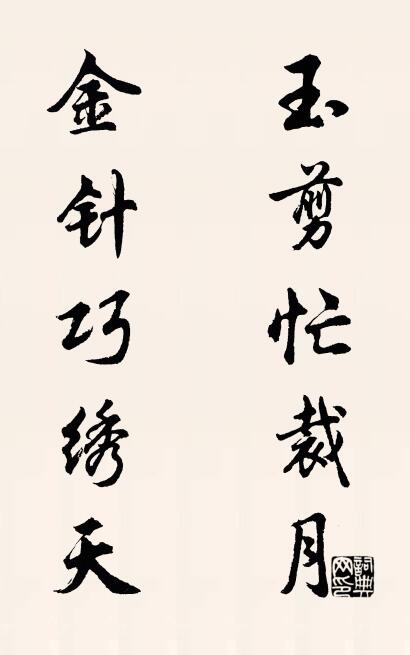 玉剪忙裁月
金针巧绣天
詞典
网印